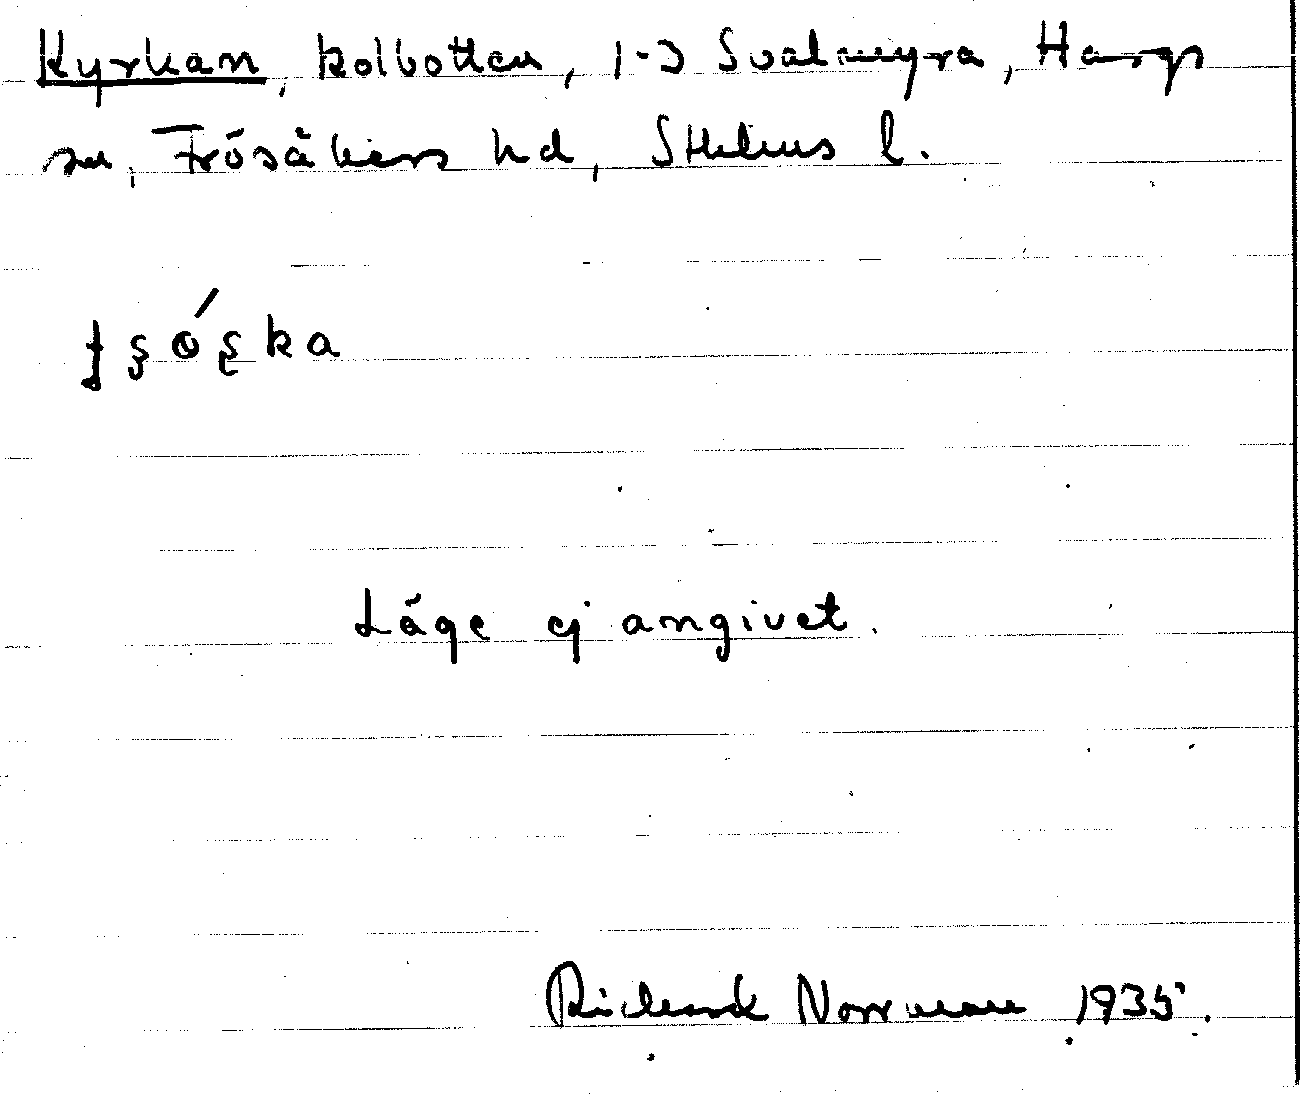 Kyrkan, kolbotten, 1-3 Svalmyra, Hargs
sn, Frösåkers hd, Sthlms l.
Läge ej angivet.
Richard Norrman 1935.